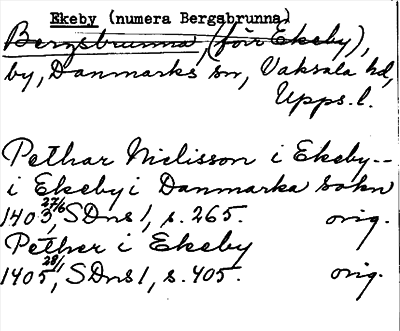 Ekeby (numera Bergsbrunna)
Bergsbrunna, (förr Ekeby),
by, Danmarks sn, Vaksala hd,
Upps. l.
Pethar Nielisson i Ekeby--
i Ekeby i Danmarka sokn
1403 27/6, SDns 1, s. 265. orig.
Pether i Ekeby
1405 28/1, SDns 1, s. 405. orig.